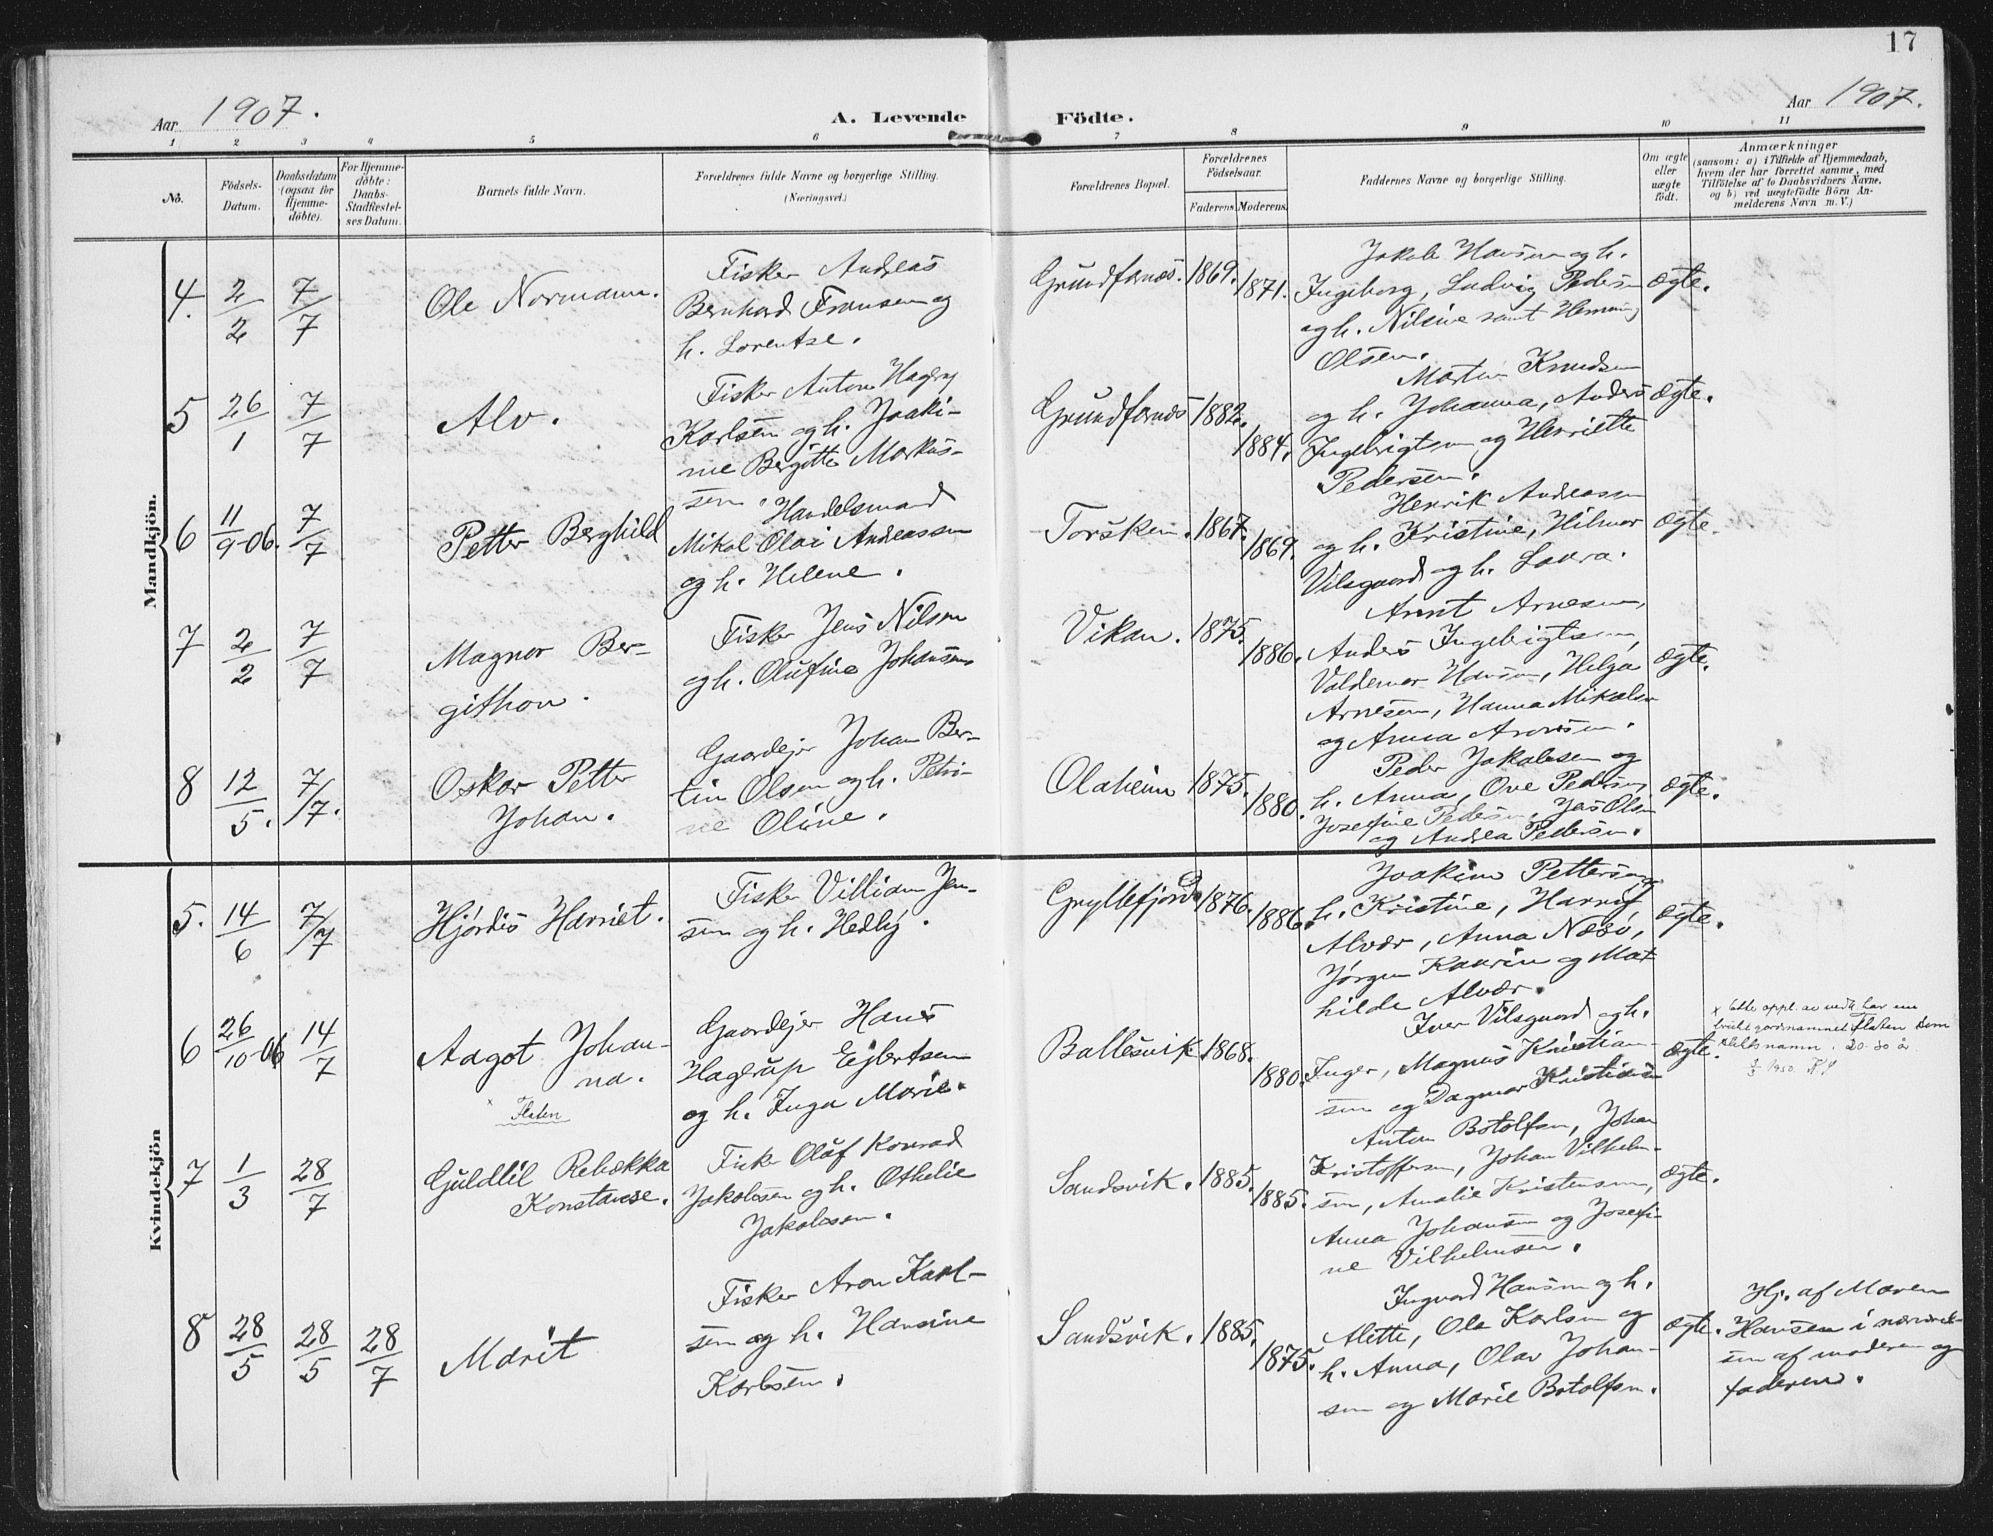 17
Aar 1907.
A. Levende Födte.
Aar 1907.
1 2 3 4 5 6 7 8 9 10 11
No.
Födsels-
Datum.
Daabsdatum
(ogsaa for
Hjemme-
döbte).
For Hjemme-
döbte:
Daabs-
Stadfæstel-
ses Datum.
Barnets fulde Navn.
Forældrenes fulde Navne og borgerlige Stilling.
(Næringsvei.)
Forældrenes Bopæl.
Forældrenes
Födselsaar.
Faderens. Moderens.
Faddernes Navne og borgerlige Stilling.
Om ægte
eller
uægte
födt.
Anmærkninger
(saasom: a) i Tilfælde af Hjemmedaab,
hvem der har forrettet samme, med
Tilföielse af to Daabsvidners Navne,
og b) ved uegtefödte Börn An-
melderens Navn m. V.)
Mandkjön.
4. 2/2 7/7
Ole Normann.
Fisker Andreas
Bernhard Fransen og
h. Lorentse.
Grundfarnes. 1869. 1871.
Jakob Hansen og h.
Ingeborg, Ludvig Pedersen
og h. Nilsine samt Henning
Olsen.
ægte.
5 26/1 7/7
Alv.
Fisker Anton Hagery
Karlsen og h. Joaki-
ne Bergitte Markus-
sen.
Grundfarnes 1882. 1884.
Morten Knudsen
og h. Johanna, Anders
Ingebrigtsen og Henriette
Pedersen.
ægte.
6 11/9-06. 7/7
Petter Berghild
Handelsmand
Mikal Olai Andreassen
og h. Helene.
Torsken. 1867. 1869.
Henrik Andreassen
og h. Kristine, Hilmar
Vilsgaard og h. Laura.
ægte.
7 2/2 7/7
Magnor Ber-
githon.
Fisker Jens Nilsen
og h. Olufine Johansen
Vikan. 1875. 1886.
Arnt Arnesen,
Anders Ingebrigtsen,
Valdemar Hansen, Helga
Arnesen, Hanna Mikalsen
og Anna Aronsen.
ægte.
8 12/5. 7/7.
Oskar Petter
Johan.
Gaardejer Johan Ber-
tin Olsen og h. Petri-
ne Oline.
Olaheim 1875. 1880.
Peder Jakobsen og
h. Anna, Ove Pedersen,
Josefine Pedersen, Jas Olsen
og Andrea Pedersen.
ægte.
Kvindekjön
5. 14/6 7/7
Hjördis Harriet.
Fisker Villiam Jen-
sen og h. Hedly.
Gryllefjord. 1876. 1886.
Joakim Pettersen og
h. Kristine,
Alvær, Anna Næsö,
Jörgen Kaurin og Mat
hilde Alvær.
ægte.
6 26/10-06 14/7
Aagot Johan-
na.
x Flaten
Gaardejer Hans
Hagerup Ejlertsen
og h. Inga Marie.
Ballesvik 1868. 1880.
Iver Vilsgaard og h.
Inger, Magnus Kristian-
sen og Dagmar Kristiansen
ægte.
x Etter oppl. av vedk. har hun
brukt gardnamnet Flaten som
slektsnamn. 20-30 år.
1950.
7 1/3 28/7
Guldlil Rebekka
Konstanse.
Fisker Oluf Konrad
Jakobsen og h. Othelie
Jakobsen.
Sandsvik. 1885. 1885.
Anton Botolfsen, Johan
Kristoffersen, Johan Vilhelm-
sen, Amalie Kristensen,
Anna Johansen og Josefi-
ne Vilhelmsen.
ægte.
8 28/5 28/5 28/7
Marit
Fisker Aron Karl-
sen og h. Hansine
Karlsen.
Sandsvik. 1885. 1875.
Ingvard Hansen og h.
Alette, Ole Karlsen og
h. Anna, Olav Johan-
sen og Marie Botolfsen.
ægte.
Hj. af Maren
Hansen i nærværel-
sen af moderen og
faderen.